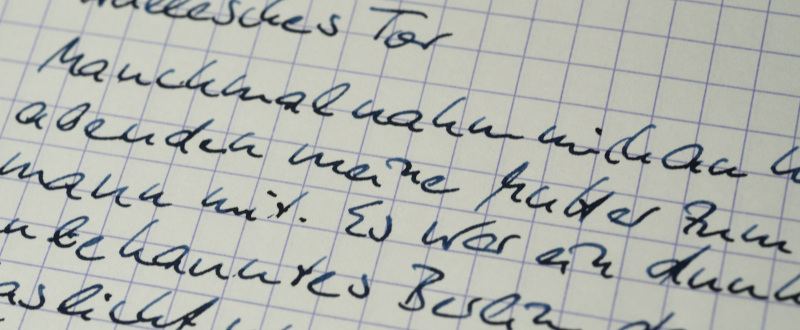 Hallesches Tor
Manchmal nahm mich an
abenden meine Mutter zum
mann mit. Es war ein dunk
unbekanntes Berlin
aslicht